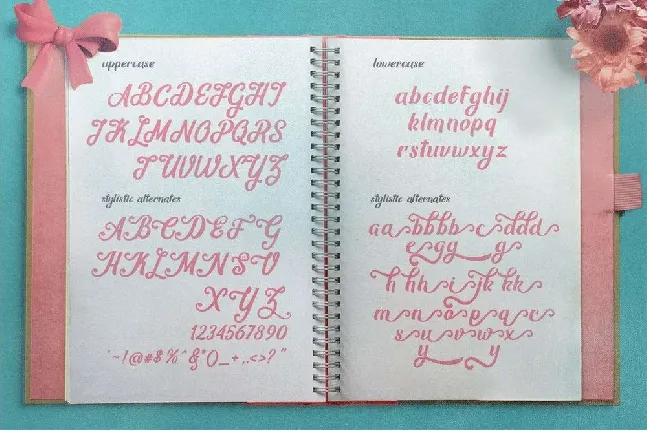 uppercase
ABCDEFGHI
JKLMNOPQRS
TUVWXYZ
stylistic alternates
ABCDEFG
HKLMNSU
XYZ
1234567890
`~!@#$%^&*()_+,.<>?"
lowercase
abcdefghij
klmnopq
rstuvwxyz
stylistic alternates
aabbbbcdddd
egyg
hhhijkkk
mnoeqcs
suvwx
yy